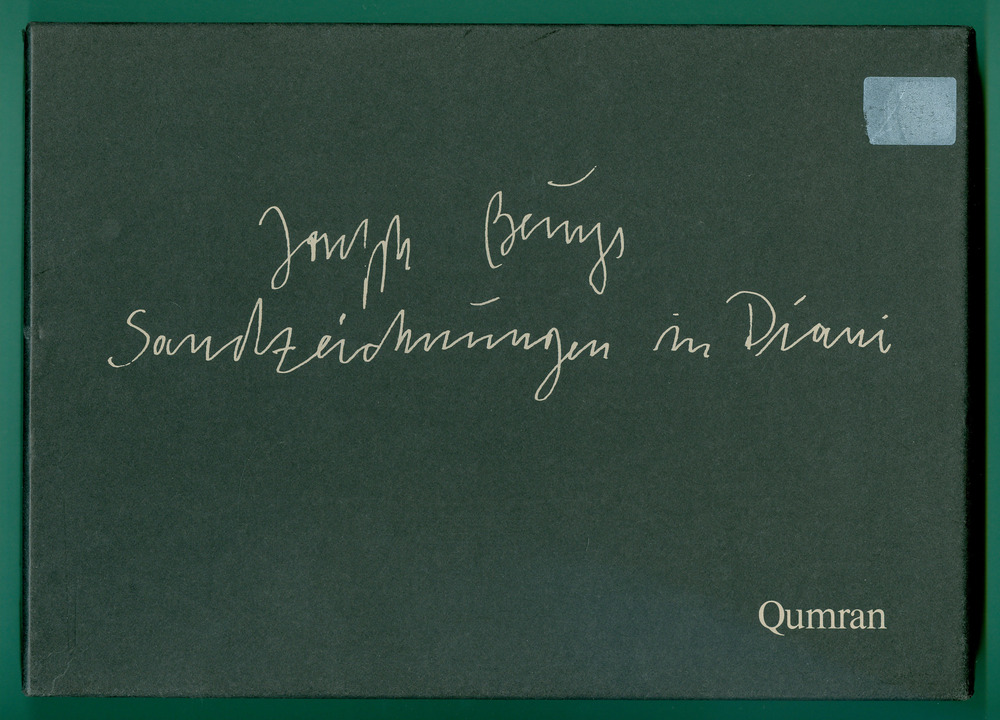 Joseph Beuys
Sandzeichnungen in Diani
Qumran